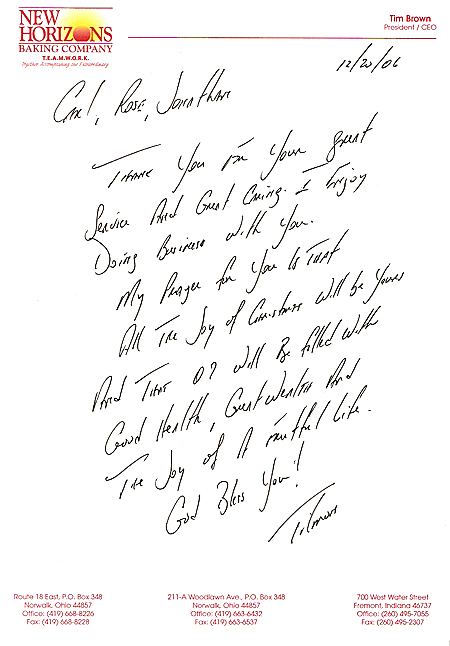 NEW
HORIZONS
BAKING COMPANY
T.E.A.M.W.O.R.K.
Together Accomplishing the Extraordinary
Tim Brown
President / CEO
12/20/06
Carl, Rose, Jonathan
Thank You For Your great
Service And Great Caring. I Enjoy
Doing Business with You.
My Prayer for You Is That
All The Joy of Christmas Will be Yours
And That 07 Will Be filled With
Good Health, Great Wealth And
The Joy of A Fruitful Life.
God Bless You!
Route 18 East, P.O. Box 348
Norwalk, Ohio 44857
Office: (419) 668-8226
Fax: (419) 668-8228
211-A Woodlawn Ave., P.O. Box 348
Norwalk, Ohio 44857
Office: (419) 663-6432
Fax: (419) 663-6537
700 West Water Street
Fremont, Indiana 46737
Office: (260) 495-7055
Fax: (260) 495-2307